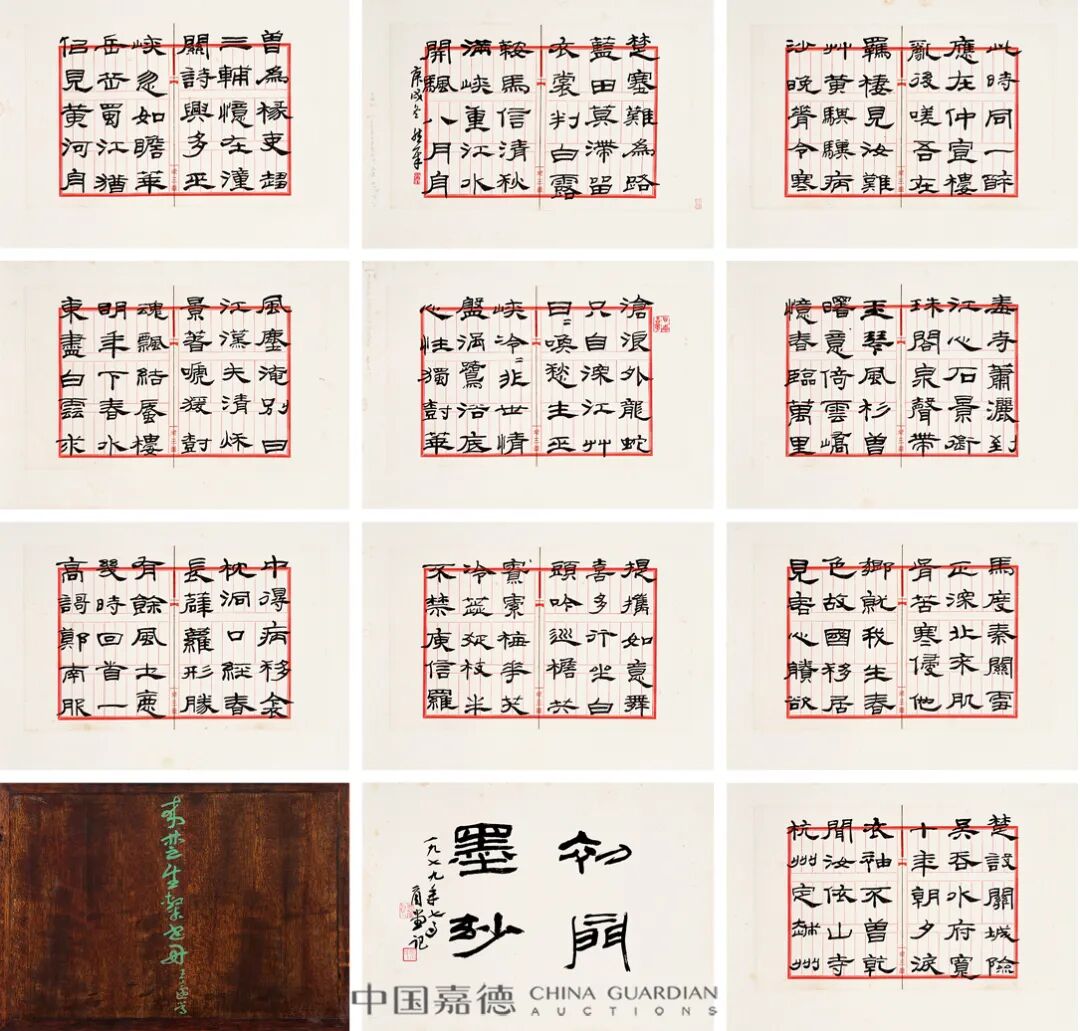 曾為掾吏趨
三輔憶在潼
關詩興多巫
峽忽如瞻華
岳蜀江猶
佀見黃河舟
楚塞難為路
藍田莫滯留
衣裳判白露
鞍馬信清秋
滿峽重江水
開颿八月舟
庚戌冬
此時同一醉
應在仲宣樓
亂後嗟吾在
羈棲見汝難
艸黃騏驥病
沙晚脊令寒
風塵淹別日
江漢失清秌
景著嗁猨尌
魂飄結蜃樓
明年下春水
東盡白雲求
滄浪外龍蛇
只自深江艸
日=喚愁生巫
峽泠=非世情
盤渦鷺浴底
心性獨尌華
寺蕭灑到
江心石景銜
珠閣泉聲帶
玉琴風杉曾
曙意倚雲嶠
憶春臨萬里
中得病移衾
枕洞口經春
長薜蘿形勝
有餘風土惡
幾時回首一
高謌鄭南
提攜如意舞
喜多行坐白
頭吟巡檐共
梅華笑
冷蕊疏枝半
不禁庾信羅
馬度秦關雪
正深北來肌
骨苦寒侵他
鄉就我生春
色故國移居
見客心賸欲
來楚生隸書冊
墨妙
一九七九年七月
楚設關城險
吳吞水府寬
十年朝夕淚
衣袖不曾乾
聞汝依山寺
杭州定越州
中国嘉德 CHINA GUARDIAN
AUCTIONS